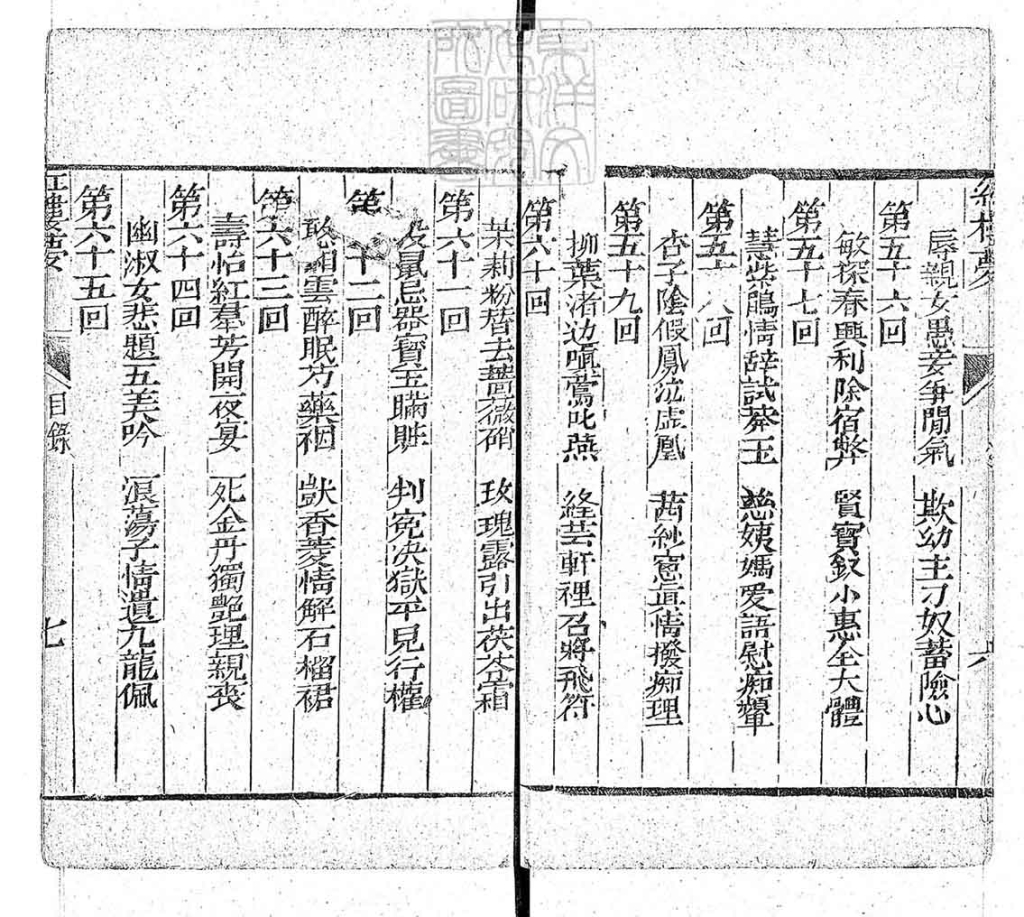 紅樓夢
辱親女愚妾爭閒氣 欺幼主刁奴蓄險心
第五十六回
敏探春興利除宿弊 賢寶釵小惠全大體
第五十七回
慧紫鵑情辞試莽玉 慈姨媽爱語慰痴顰
第五十八回
杏子陰假鳳泣虛凰 茜紗窓真情撥痴理
第五十九回
柳葉渚边嗔鶯叱燕 絳芸軒裡召將飛符
第六十回
茉莉粉替去薔薇硝 玫瑰露引出茯苓霜
第六十一回
投鼠忌器寶玉瞞贓 判寃决獄平兒行權
第 十二回
憨湘雲醉眠芍藥裀 獃香菱情解石榴裙
第六十三回
壽怡紅羣芳開夜宴 死金丹獨艷理親喪
第六十四回
幽淑女悲題五美吟 浪蕩子情遺九龍佩
第六十五回
紅樓夢 目錄 七
東洋文化研究所圖書